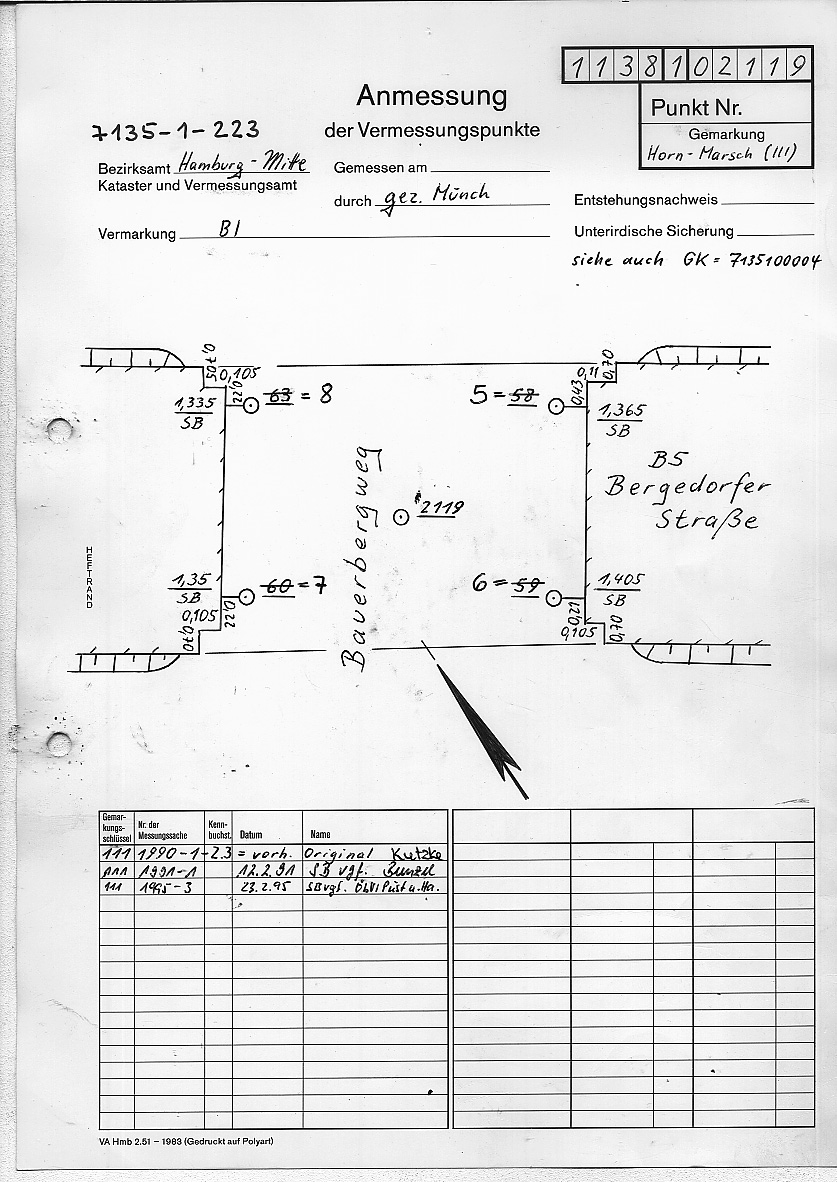 1 1 3 8 1 0 2 1 1 9
Anmessung
der Vermessungspunkte
Punkt Nr.
Gemarkung
Horn-Marsch (111)
7135-1-223
Bezirksamt Hamburg-Mitte
Kataster und Vermessungsamt
Gemessen am
durch gez. Münch
Entstehungsnachweis
Vermarkung Bl
Unterirdische Sicherung
siehe auch GK = 7135100004
0,105
0,22
63 = 8
1,335
SB
0,11
0,70
0,43
5 = 58
1,365
SB
B5
Bergedorfer
Straße
Bauerbergweg
2119
HEFTRAND
1,35
SB
60 = 7
0,105
0,22
0,70
6 = 59
1,405
SB
0,21
0,105
0,70
Gemar-
kungs-
schlüssel
Nr. der
Messungssache
Kenn-
buchst.
Datum
Name
111 1990-1-2.3 = vorh. Original Kutzke
111 1991-1 12.2.91 SB vgf.
111 1995-3 23.2.95 SB vgf. ÖbVI
VA Hmb 2.51 – 1983 (Gedruckt auf Polyart)